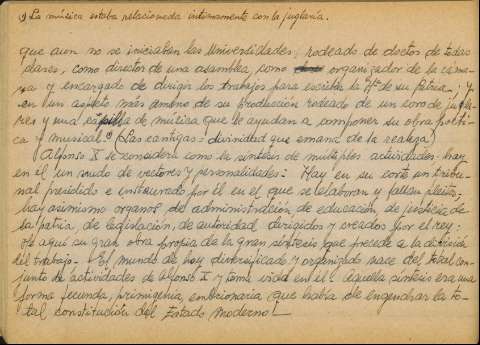 1) La música estaba relacionada internamente con la juglaría.
que aun no se iniciaban las Universidades; rodeado de doctos de todas
clases, como director de una asamblea, como organizador de la cáma-
ra y encargado de dirigir los trabajos para escribir la Hª de su Patria; y
en un aspecto más ameno de su producción rodeado de un coro de jugla-
res y una capilla de música que le ayudan a componer su obra poéti-
ca y musical. (Las cantigas = divinidad que emana de la realeza)
Alfonso X se considera como la síntesis de multiples actividades: hay
en él un nudo de vectores y personalidades: Hay en su corte un tribu-
nal presidido e instaurado por él en el que se elaboran y fallan pleitos;
hay asimismo organos de administración, de educación, de justicia, de
la patria, de legislación, de autoridad, dirigidos y creados por el rey:
He aquí su gran obra propia de la gran síntesis que precede a la división
del trabajo. El mundo de hoy diversificado y organizado nace del total con-
junto de actividades de Alfonso X y toma vida en él! Aquella síntesis era una
forma fecunda, primigenia, embrionaria que había de engendrar la to-
tal constitución del Estado Moderno!